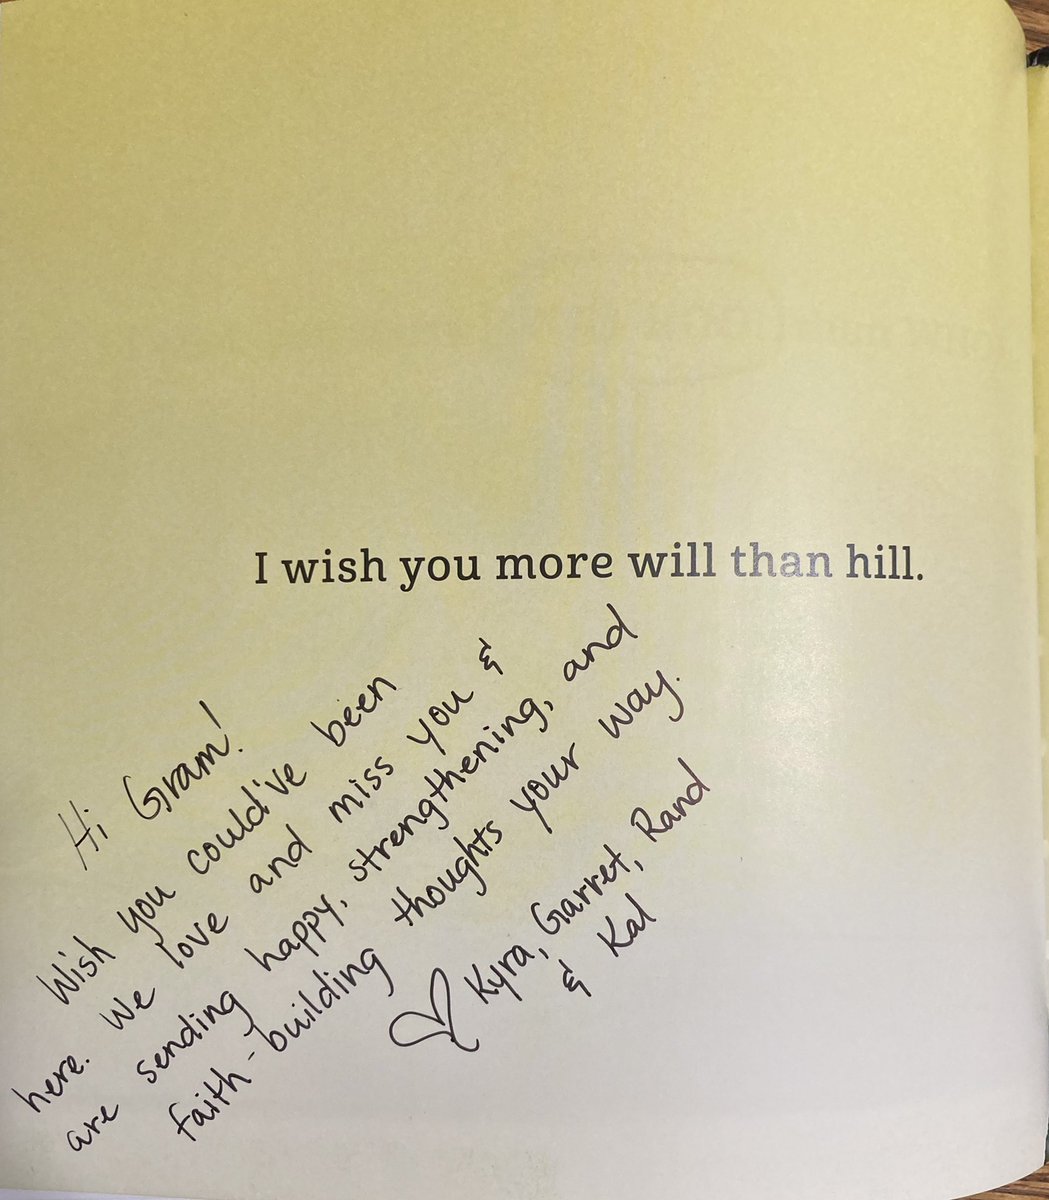 I wish you more will than hill.
Hi Gram!
Wish you could've been
here. We love and miss you &
are sending happy, strengthening, and
faith-building thoughts your way.
♡ Kyra, Garret, Rand
& Kal